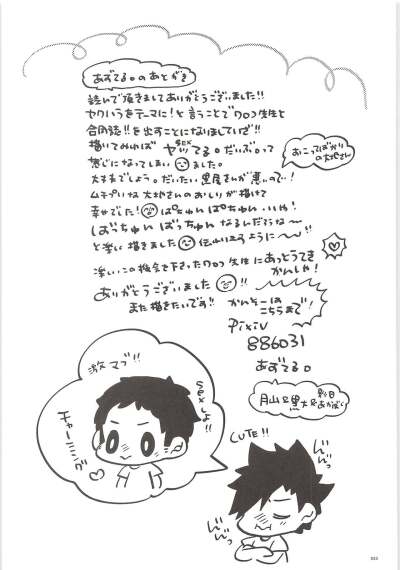 あずてる。のあとがき
読んで頂きましてありがとうございました!!
ヤクハラをテーマに!と言うことでワロコ先生と
合同誌!!を出すことになりましていざ!!
描いてみれば ヤッてる。だいぶ。って
SEX
感じになってしまい ました。
おこってばかり
の大地さん
大丈夫でしょう。だいたい黒尾さんが悪いので!
ムチプリな大地さんのおしりが描けて
幸せでした! ぱちゅんぱちゅん。いや!
ばちゅんばっちゅんなるんだろうな〜
と楽しく描きました 伝わりますように〜!!
楽しいこの機会を下さったワロコ先生に あっとうてき
かんしゃ!
ありがとうございました !!
また描きたいです!!
かんそーは
こちらまで!
Pixiv
886031
あずてる。
激マブ!!
SEXしよ!!
チャーミング
CUTE!!
んんっ
んんっ